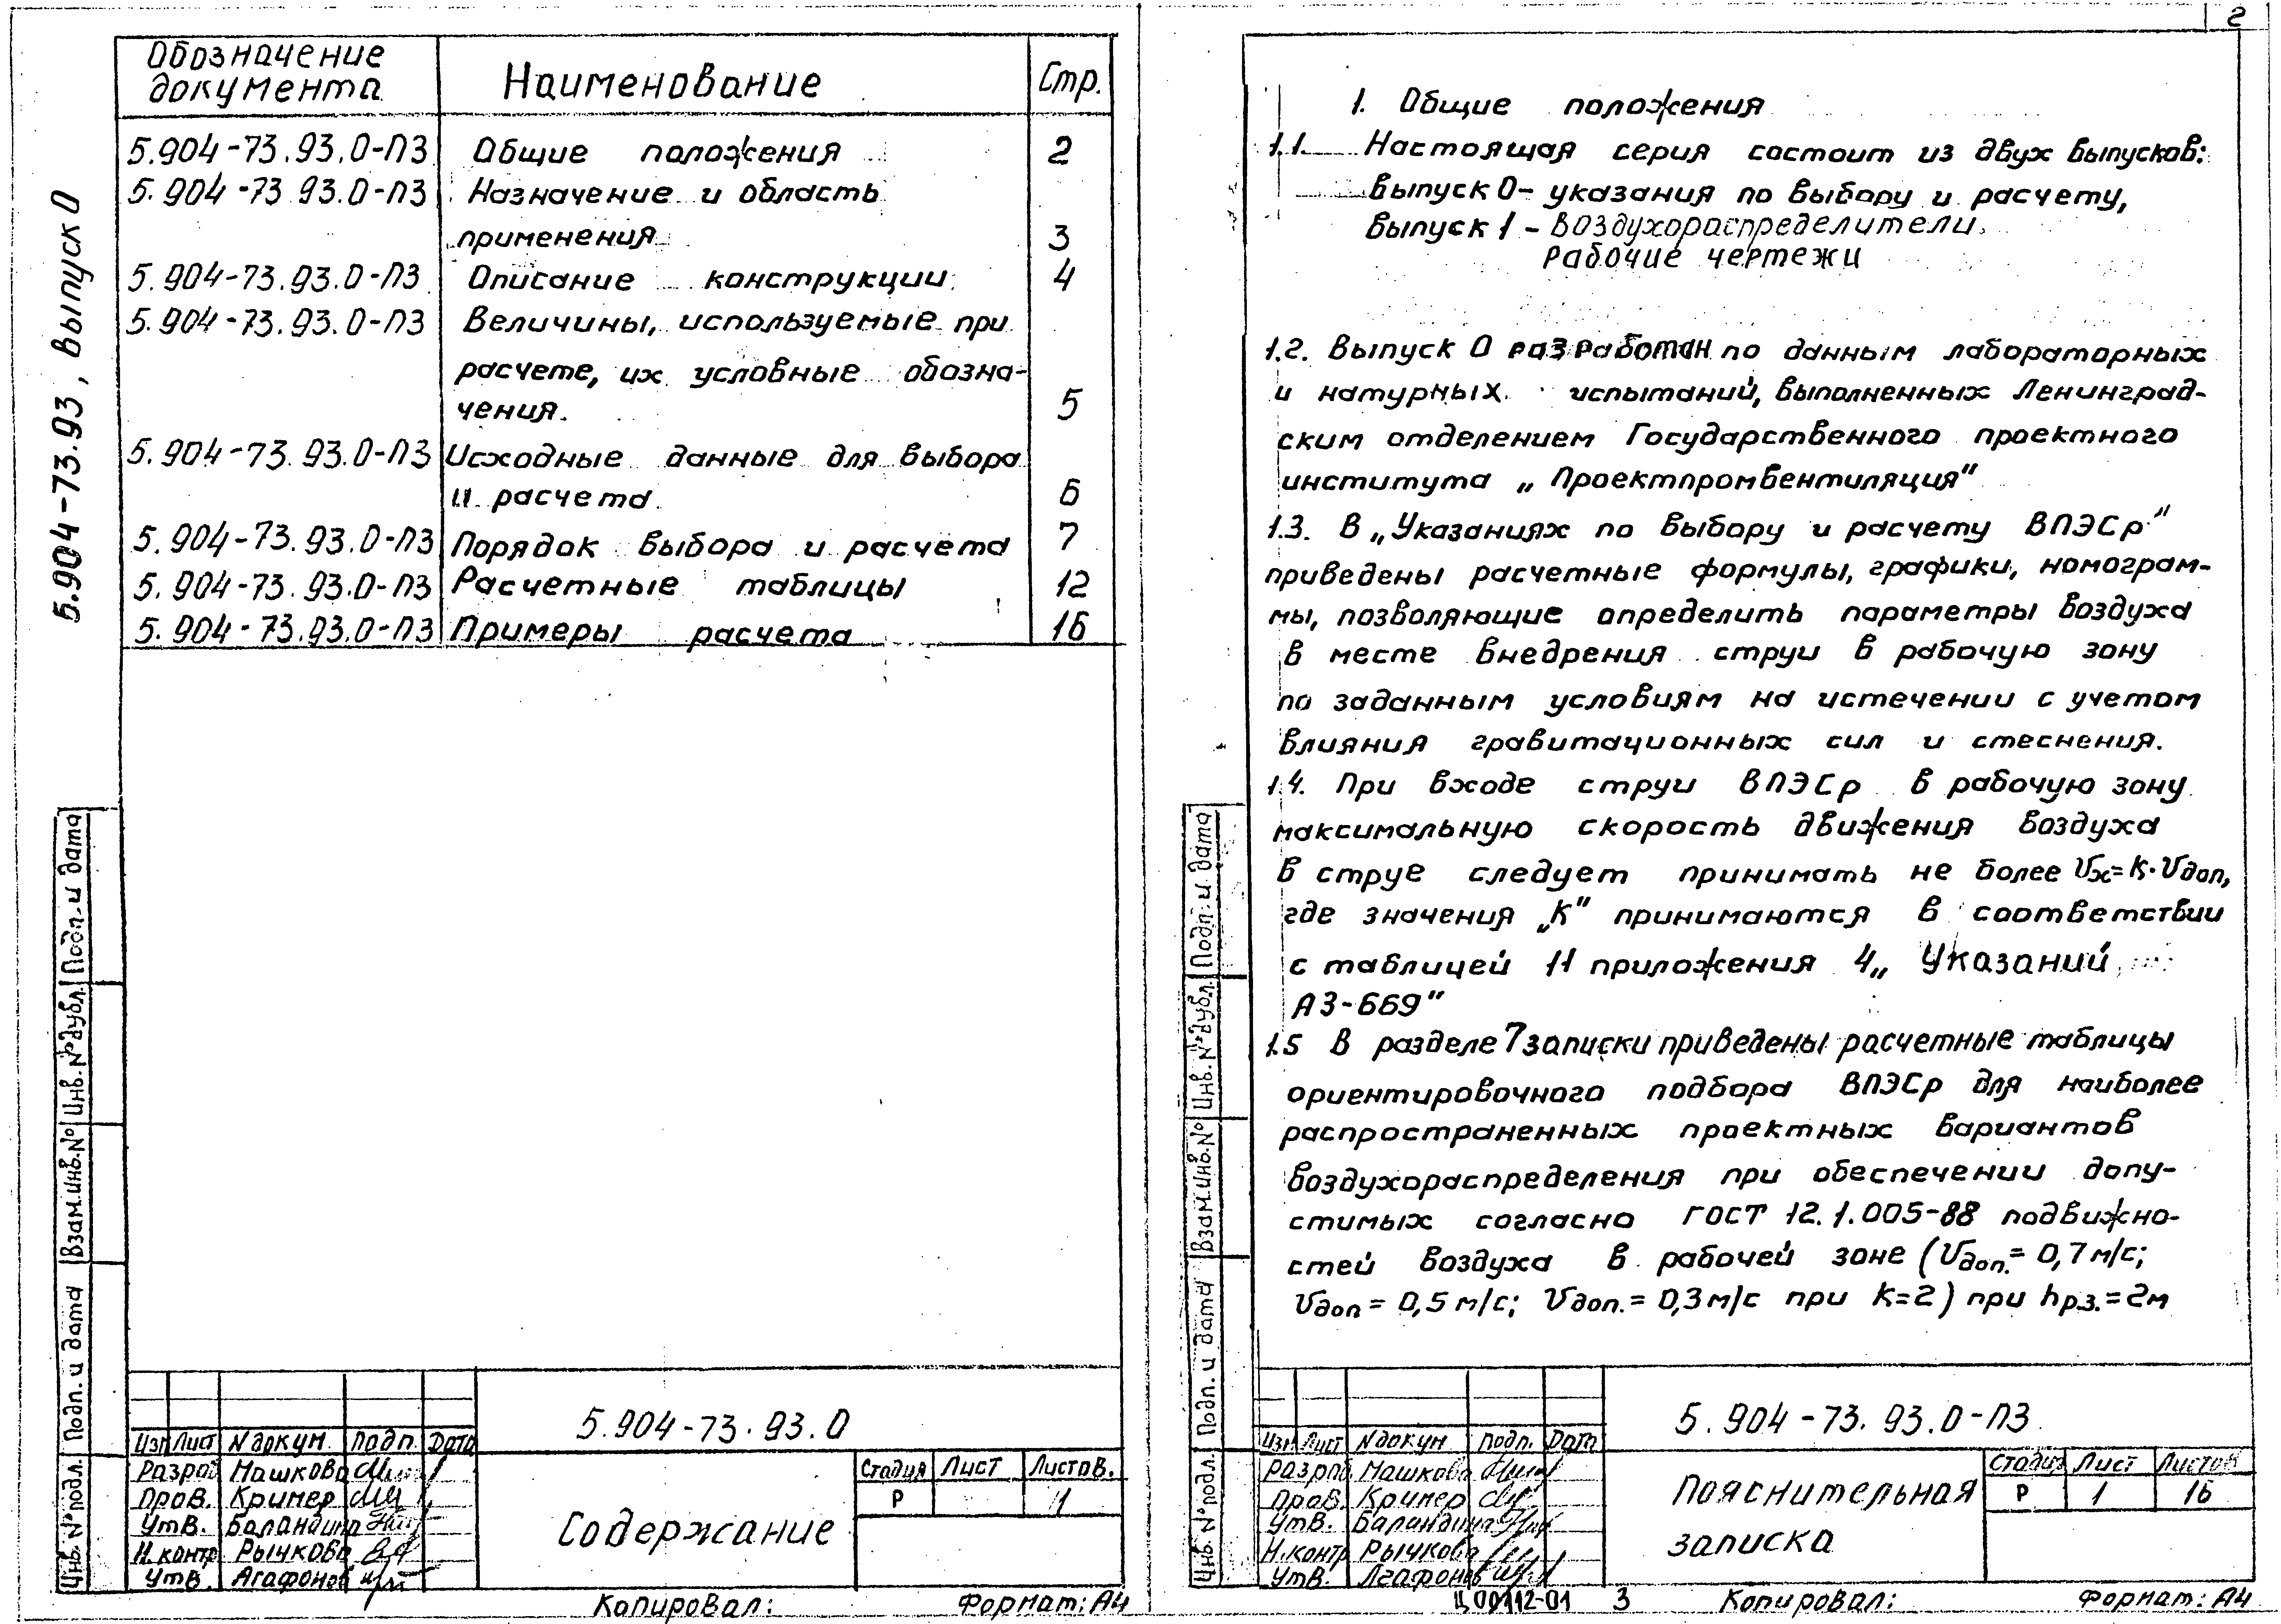 5.904-73.93, выпуск 0
Обозначение документа
Наименование
Стр.
5.904-73.93.0-ПЗ Общие положения 2
5.904-73.93.0-ПЗ Назначение и область
применения 3
5.904-73.93.0-ПЗ Описание конструкции 4
5.904-73.93.0-ПЗ Величины, используемые при
расчете, их условные обозна-
чения. 5
5.904-73.93.0-ПЗ Исходные данные для выбора
и расчета. 6
5.904-73.93.0-ПЗ Порядок выбора и расчета 7
5.904-73.93.0-ПЗ Расчетные таблицы 12
5.904-73.93.0-ПЗ Примеры расчета 16
Инв. № подл. Подп. и дата Взам.инв.№ Инв.№ дубл. Подп. и дата
5.904-73.93.0
Изм Лист № докум. Подп. Дата
Разраб Машкова
Пров. Кример
Утв. Баландина
Н.контр Рычкова
Утв. Агафонов
Содержание
Стадия Лист Листов.
Р 1
Копировал: Формат: А4
2
1. Общие положения
1.1. Настоящая серия состоит из двух выпусков:
выпуск 0- указания по выбору и расчету,
выпуск 1 - Воздухораспределители.
Рабочие чертежи
1.2. Выпуск 0 разработан по данным лабораторных
и натурных испытаний, выполненных Ленинград-
ским отделением Государственного проектного
института „Проектпромвентиляция"
1.3. В „Указаниях по выбору и расчету ВПЭСр"
приведены расчетные формулы, графики, номограм-
мы, позволяющие определить параметры воздуха
в месте внедрения струи в рабочую зону
по заданным условиям на истечении с учетом
влияния гравитационных сил и стеснения.
1.4. При входе струи ВПЭСр в рабочую зону
максимальную скорость движения воздуха
в струе следует принимать не более Vx=К·Vдоп,
где значения „К" принимаются в соответствии
с таблицей 11 приложения 4„ Указаний
АЗ-669"
1.5 В разделе 7 записки приведены расчетные таблицы
ориентировочного подбора ВПЭСр для наиболее
распространенных проектных вариантов
воздухораспределения при обеспечении допу-
стимых согласно ГОСТ 12.1.005-88 подвижно-
стей воздуха в рабочей зоне (Vдоп.= 0,7 м/с;
Vдоп = 0,5 м/с; Vдоп.= 0,3 м/с при К=2) при hр.з.=2м
Инв. № подл. Подп. и дата Взам.инв.№ Инв.№ дубл. Подп. и дата
5.904-73.93.0-ПЗ
Изм Лист № докум Подп. Дата
Разраб Машкова
Пров. Кример
Утв. Баландина
Н.контр Рычкова
Утв. Агафонов
Пояснительная
записка
Стадия Лист Листов
Р 1 16
Ц00112-01 3 Копировал: Формат: А4